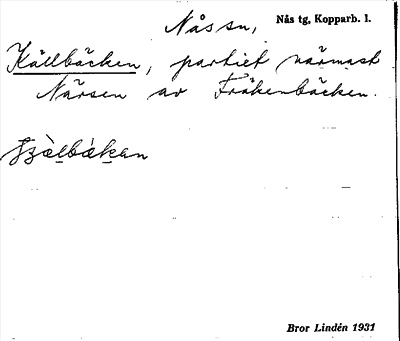 Nås sn, Nås tg, Kopparb. l.
Källbäcken, partiet närmast
Närsen av Fräkenbäcken.
Bror Lindén 1931